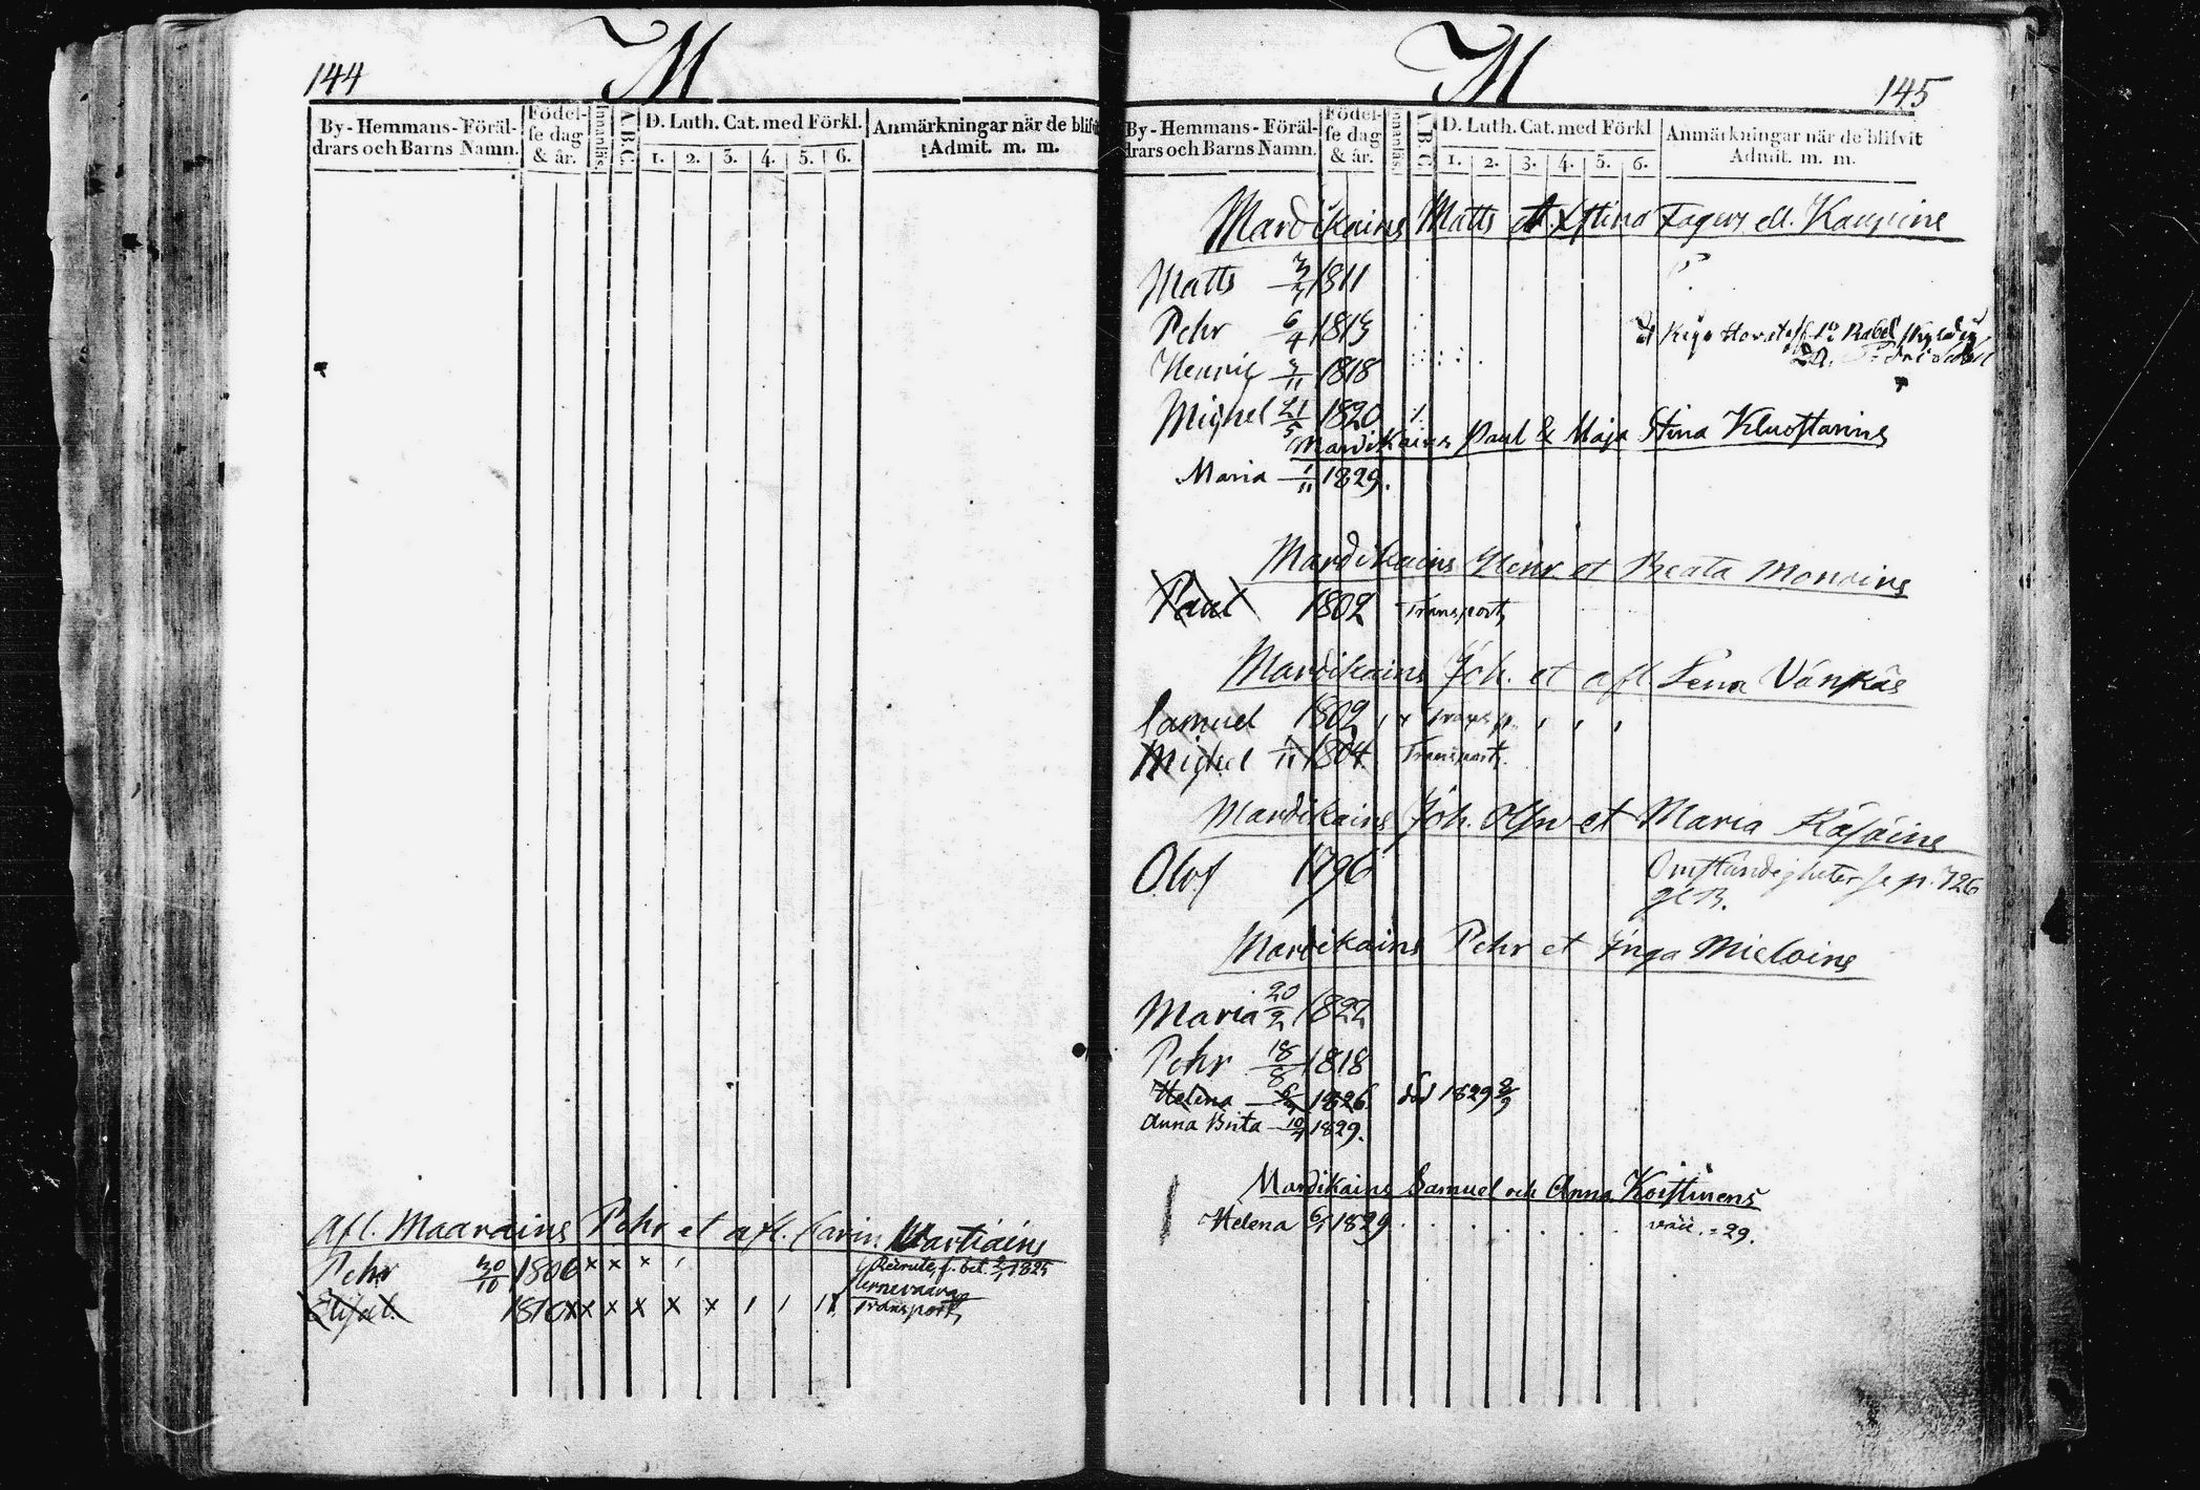 144
M
By-Hemmans-Föräldrars och Barns Namn.
Födelse dag & år.
Innanläs.
A.B.C.
D. Luth. Cat. med Förkl.
1. 2. 3. 4. 5. 6.
Anmärkningar när de blifvit Admit. m. m.
Afl. Maarains Pehr et afl. Carin Martiains
Pehr 30/10 1806 x x x
1825
Elisab. 1810 x x x x x x Transport
M
145
By-Hemmans-Föräldrars och Barns Namn.
Födelse dag & år.
Innanläs.
A.B.C.
D. Luth. Cat. med Förkl
1. 2. 3. 4. 5. 6.
Anmärkningar när de blifvit Admit. m. m.
Mardikains Matts et Stina Fagers ell.
Matts 1811
Pehr 6/4
Henric 1818
Michel 21/5 1820
Mardikains Paul & Maja Stina
Maria 1/11 1829.
Mardikains Henr et Beata Monoins
Paul 1802 Transport
Mardikains Joh. et afl Lena
Samuel 1802 Transp.
Michel 1804 Transport.
Mardikains Joh. et Maria
Olof 1796 Omständigheter se p. 726
Mardikains Pehr et Inga
Maria 20/2 1822
Pehr 18/8 1818
Helena 1826 död 1829
Anna Brita 1829.
Mardikains Samuel och Anna
Helena 1829 . . . . . . . 29.